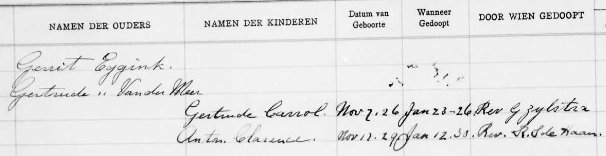 NAMEN DER OUDERS NAMEN DER KINDEREN Datum van Geboorte Wanneer Gedoopt DOOR WIEN GEDOOPT
Gerrit Eggink.
Gertrude " Vander Meer
Gertrude Carrol. Nov 7. 26 Jan 23-26 Rev G Zylstra
Anton Clarence. Nov 12. 29 Jan 12. 30. Rev. R. S. de Haan.